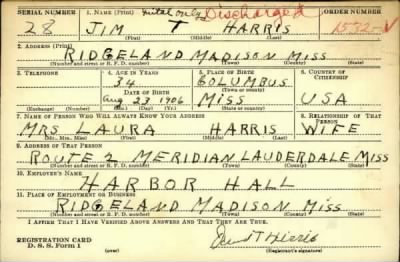 SERIAL NUMBER 1. NAME (Print) Discharged ORDER NUMBER
28 JIM T HARRIS 1532-V
(First) (Middle) (Last)
2. ADDRESS (Print)
RIDGELAND MADISON MISS
(Number and street or R. F. D. number) (Town) (County) (State)
3. TELEPHONE 4. AGE IN YEARS 5. PLACE OF BIRTH 6. COUNTRY OF CITIZENSHIP
34 COLUMBUS
DATE OF BIRTH (Town or county)
Aug 23 1906 MISS USA
(Exchange) (Number) (Mo.) (Day) (Yr.) (State or country)
7. NAME OF PERSON WHO WILL ALWAYS KNOW YOUR ADDRESS 8. RELATIONSHIP OF THAT PERSON
MRS LAURA HARRIS WIFE
(Mr., Mrs., Miss) (First) (Middle) (Last)
9. ADDRESS OF THAT PERSON
ROUTE 2 MERIDIAN, LAUDERDALE MISS
(Number and street or R. F. D. number) (Town) (County) (State)
10. EMPLOYER'S NAME
HARBOR HALL
11. PLACE OF EMPLOYMENT OR BUSINESS
RIDGELAND MADISON MISS
(Number and street or R. F. D. number) (Town) (County) (State)
I AFFIRM THAT I HAVE VERIFIED ABOVE ANSWERS AND THAT THEY ARE TRUE.
REGISTRATION CARD
D. S. S. Form 1 (over) (Registrant's signature)